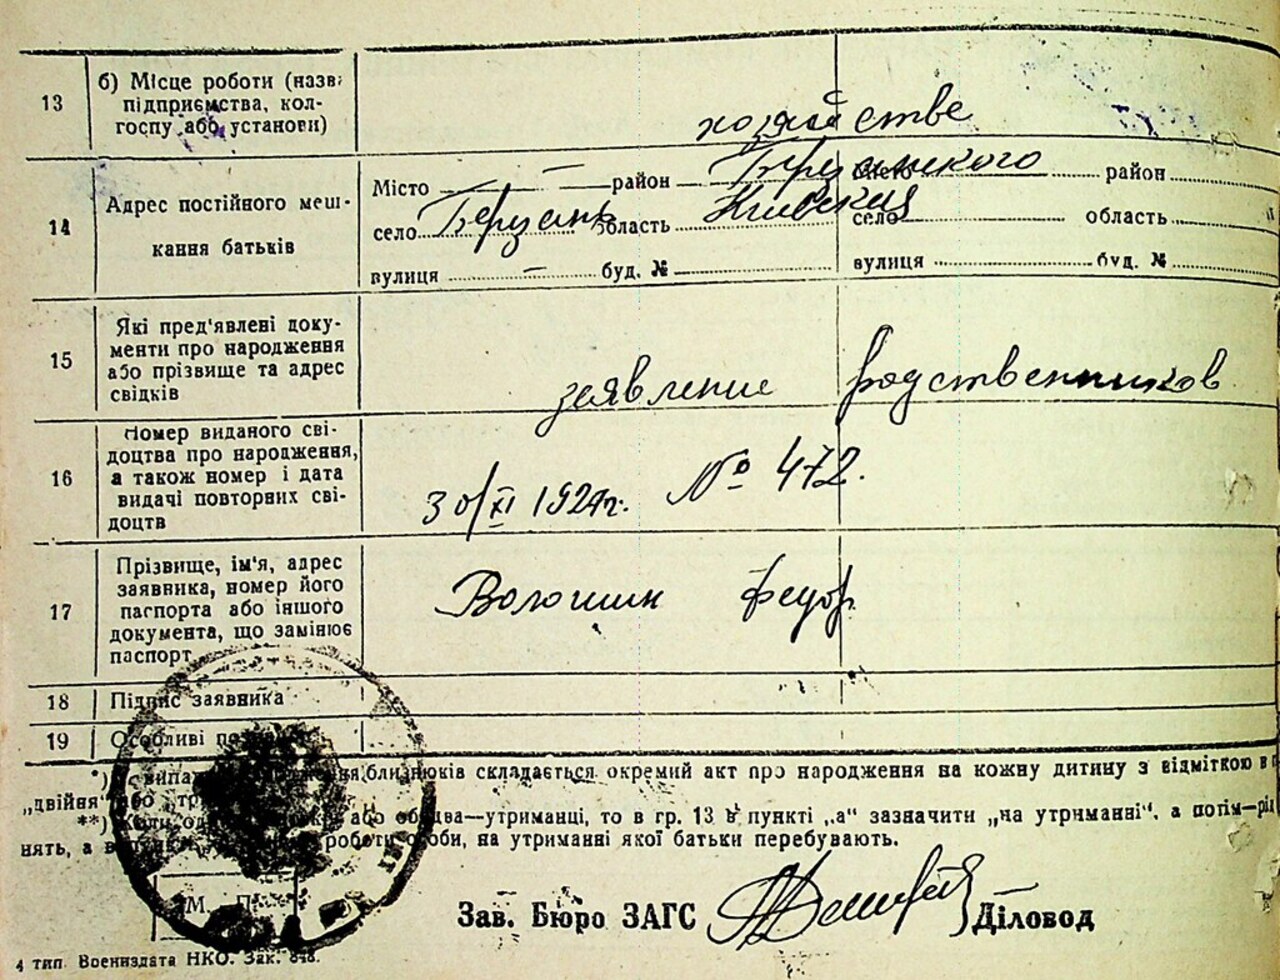 13
б) Місце роботи (назв
підприємства, кол-
госпу або установи)
хозяйстве
14
Адрес постійного меш-
кання батьків
Місто — — район Березанского район
село Березань область Киевская село область
вулиця — буд. № вулиця буд. №
15
Які пред'явлені доку-
менти про народження
або прізвище та адрес
свідків
заявление родственников
16
Номер виданого сві-
доцтва про народження,
а також номер і дата
видачі повторних сві-
доцтв
30/XI 1924г. № 472.
17
Прізвище, ім'я, адрес
заявника, номер його
паспорта або іншого
документа, що замінює
паспорт
Волошин Федор
18
Підпис заявника
19
Особливі
*) випа близнюків складається окремий акт про народження на кожну дитину з відміткою в
„двійня"
**) Коли або обидва—утриманці, то в гр. 13 в пункті „а" зазначити „на утриманні", а потім—
нять, а роботи особи, на утриманні якої батьки перебувають.
М. П.
Зав. Бюро ЗАГС Діловод
4 тип. Воениздата НКО. Зак. 848.